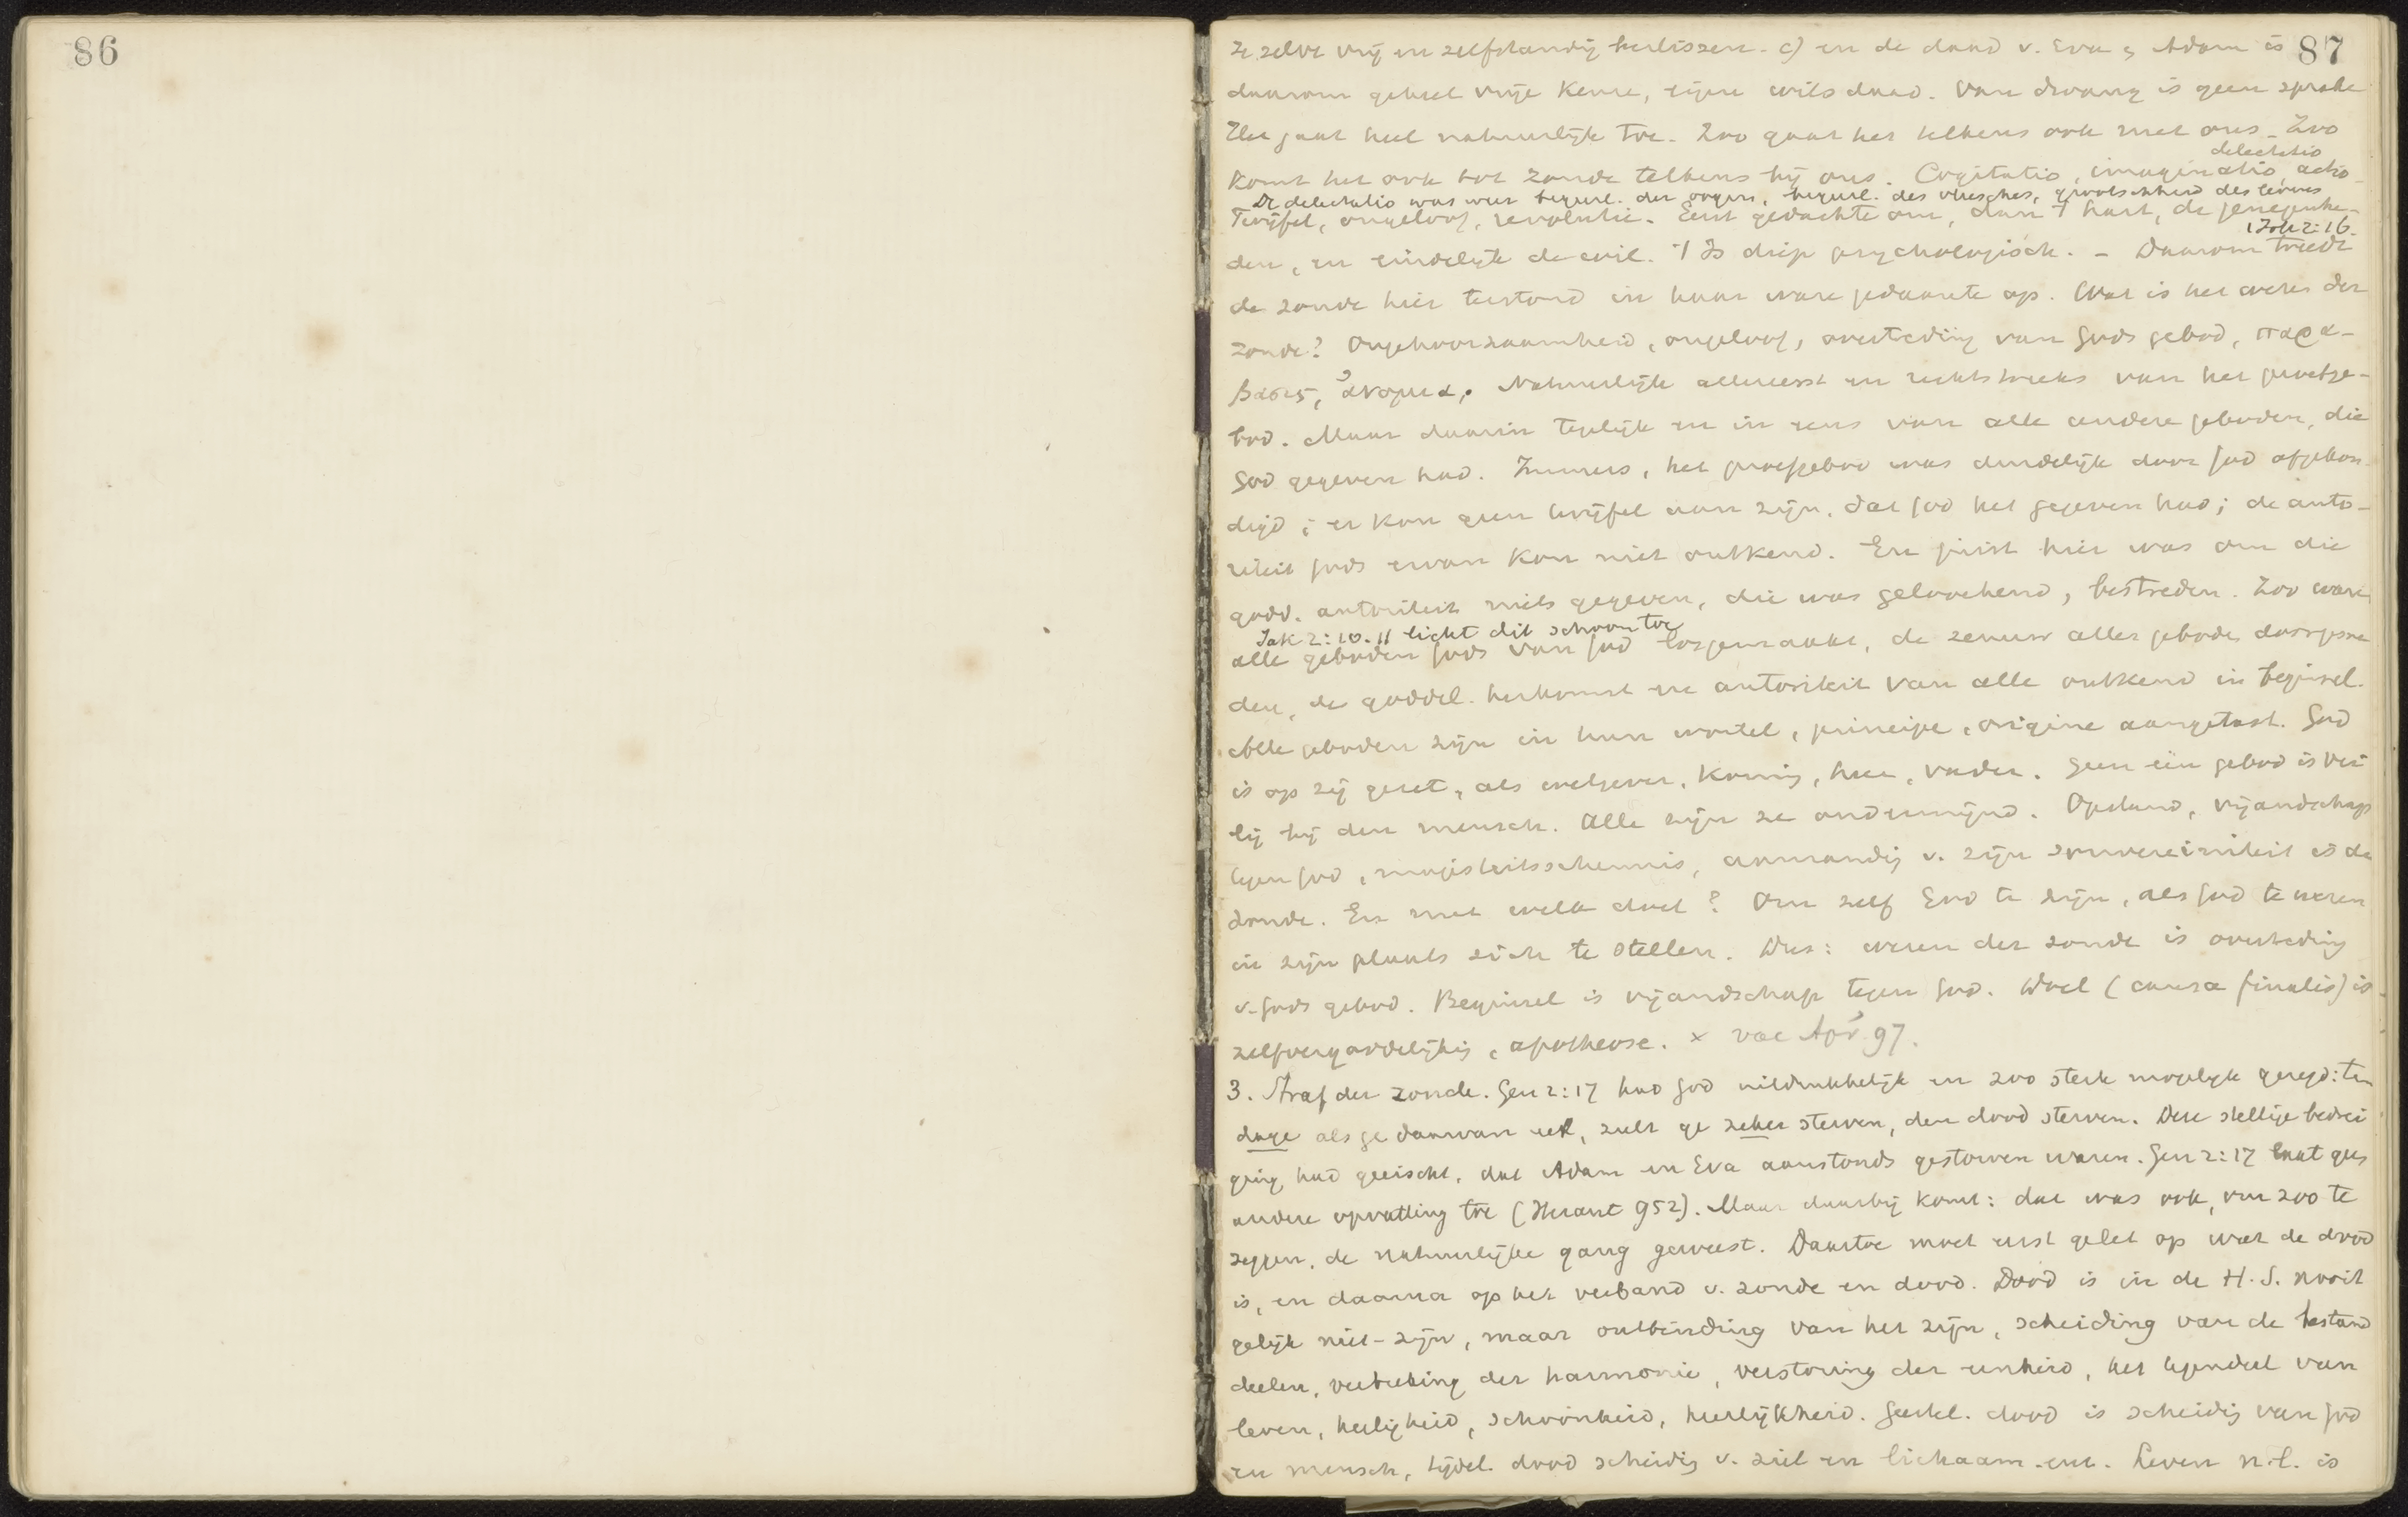 86
87
ze zelve vrij en zelfstandig beslissen. c) en de daad v. Eva & Adam is
daarom geheel vrije keuze, eigen wilsdaad. Van dwang is geen sprake
Het gaat heel natuurlijk toe. Zoo gaat het telkens ook met ons. Zoo
delectatio
komt het ook tot zonde telkens bij ons. Cogitatio, imaginatio, actio
De delectatio was weer begeerl. der oogen, begeerl. des vleesches, grootschheid des levens
1 Joh 2:16.
Twijfel, ongeloof, revolutie. Eerst gedachte om, dan 't hart, de genegenhe-
den, en eindelijk de wil. 't Is diep psychologisch. - Daarom treedt
de zonde hier terstond in haar ware gedaante op. Wat is het wezen der
zonde? Ongehoorzaamheid, ongeloof, overtreding van Gods gebod, παρα-
βασις, ἀνομια. Natuurlijk allereerst en rechtstreeks van het proefge-
bod. Maar daarin tegelijk en in eens van alle andere geboden, die
God gegeven had. Immers, het proefgebod was duidelijk door God afgekon-
digd; er kon geen twijfel aan zijn, dat God het gegeven had; de auto-
riteit Gods ervan kon niet ontkend. En juist hier was om die
godd. autoriteit niets gegeven, die was geloochend, bestreden. Zoo waren
Jak 2:10.11 licht dit schoon toe
alle geboden Gods van God losgemaakt, de zenuw aller geboden doorgesne
den, de goddel. herkomst en autoriteit van alle ontkend in beginsel.
Alle geboden zijn in hun wortel, principe, origine aangetast. God
is op zij gezet, als wetgever, Koning, heer, vader. Geen één gebod is vei
lig bij den mensch. Alle zijn ze ondermijnd. Opstand, vijandschap
tegen God, majesteitsschennis, aanranding v. zijn souvereiniteit is de
zonde. En met welk doel? Om zelf God te zijn, als God te wezen
in zijn plaats zich te stellen. Dus: wezen der zonde is overtreding
v. Gods gebod. Beginsel is vijandschap tegen God. Doel (causa finalis) is
zelfvergoddelijking, apotheose. × vac Apr 97.
3. Straf der zonde. Gen 2:17 had God uitdrukkelijk en zoo sterk mogelijk gezegd: ten
dage als ge daarvan eet, zult ge zeker sterven, den dood sterven. Deze stellige bedrei
ging had geëischt, dat Adam en Eva aanstonds gestorven waren. Gen 2:17 laat geen
andere opvatting toe (Heraut 952). Maar daarbij komt: dat was ook, om zoo te
zeggen, de natuurlijke gang geweest. Daartoe moet eerst gelet op wat de dood
is, en daarna op het verband v. zonde en dood. Dood is in de H.S. nooit
gelijk niet-zijn, maar ontbinding van het zijn, scheiding van de bestand
deelen, verbreking der harmonie, verstoring der eenheid, het tegendeel van
leven, heiligheid, schoonheid, heerlijkheid. Geestel. dood is scheiding van God
en mensch, tijdel. dood scheiding v. ziel en lichaam. enz. Leven n.l. is